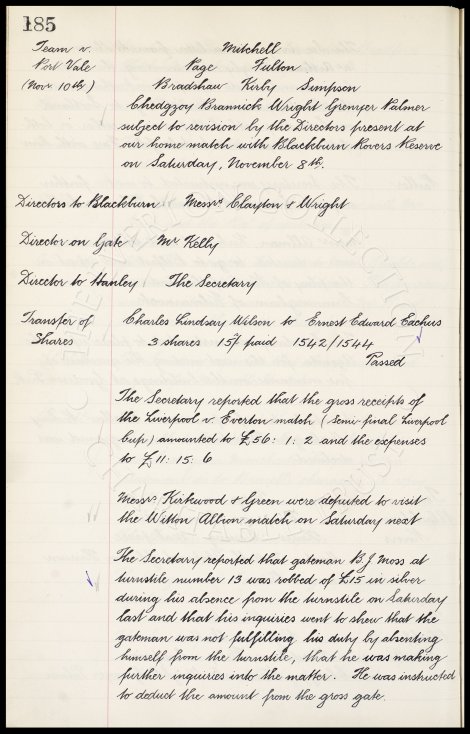 185
Team v. Mitchell
Port Vale Page Fulton
(Nov. 10th) Bradshaw Kirby Simpson
Chedgzoy Brannick Wright Grenyer Palmer
subject to revision by the Directors present at
our home match with Blackburn Rovers Reserve
on Saturday, November 8th.
Directors to Blackburn Messrs Clayton & Wright
Director on Gate Mr Kelly
Director to Hanley The Secretary
Transfer of Charles Lindsay Wilson to Ernest Edward Eachus
Shares 3 shares 15/- paid 1542/1544
Passed
The Secretary reported that the gross receipts of
the Liverpool v. Everton match (semi-final Liverpool
Cup) amounted to £56: 1: 2 and the expenses
to £11: 15: 6
Messrs Kirkwood & Green were deputed to visit
the Witton Albion match on Saturday next
The Secretary reported that gateman B.J Moss at
turnstile number 13 was robbed of £15 in silver
during his absence from the turnstile on Saturday
last and that his inquiries went to shew that the
gateman was not fulfilling his duty by absenting
himself from the turnstile, that he was making
further inquiries into the matter. He was instructed
to deduct the amount from the gross gate.